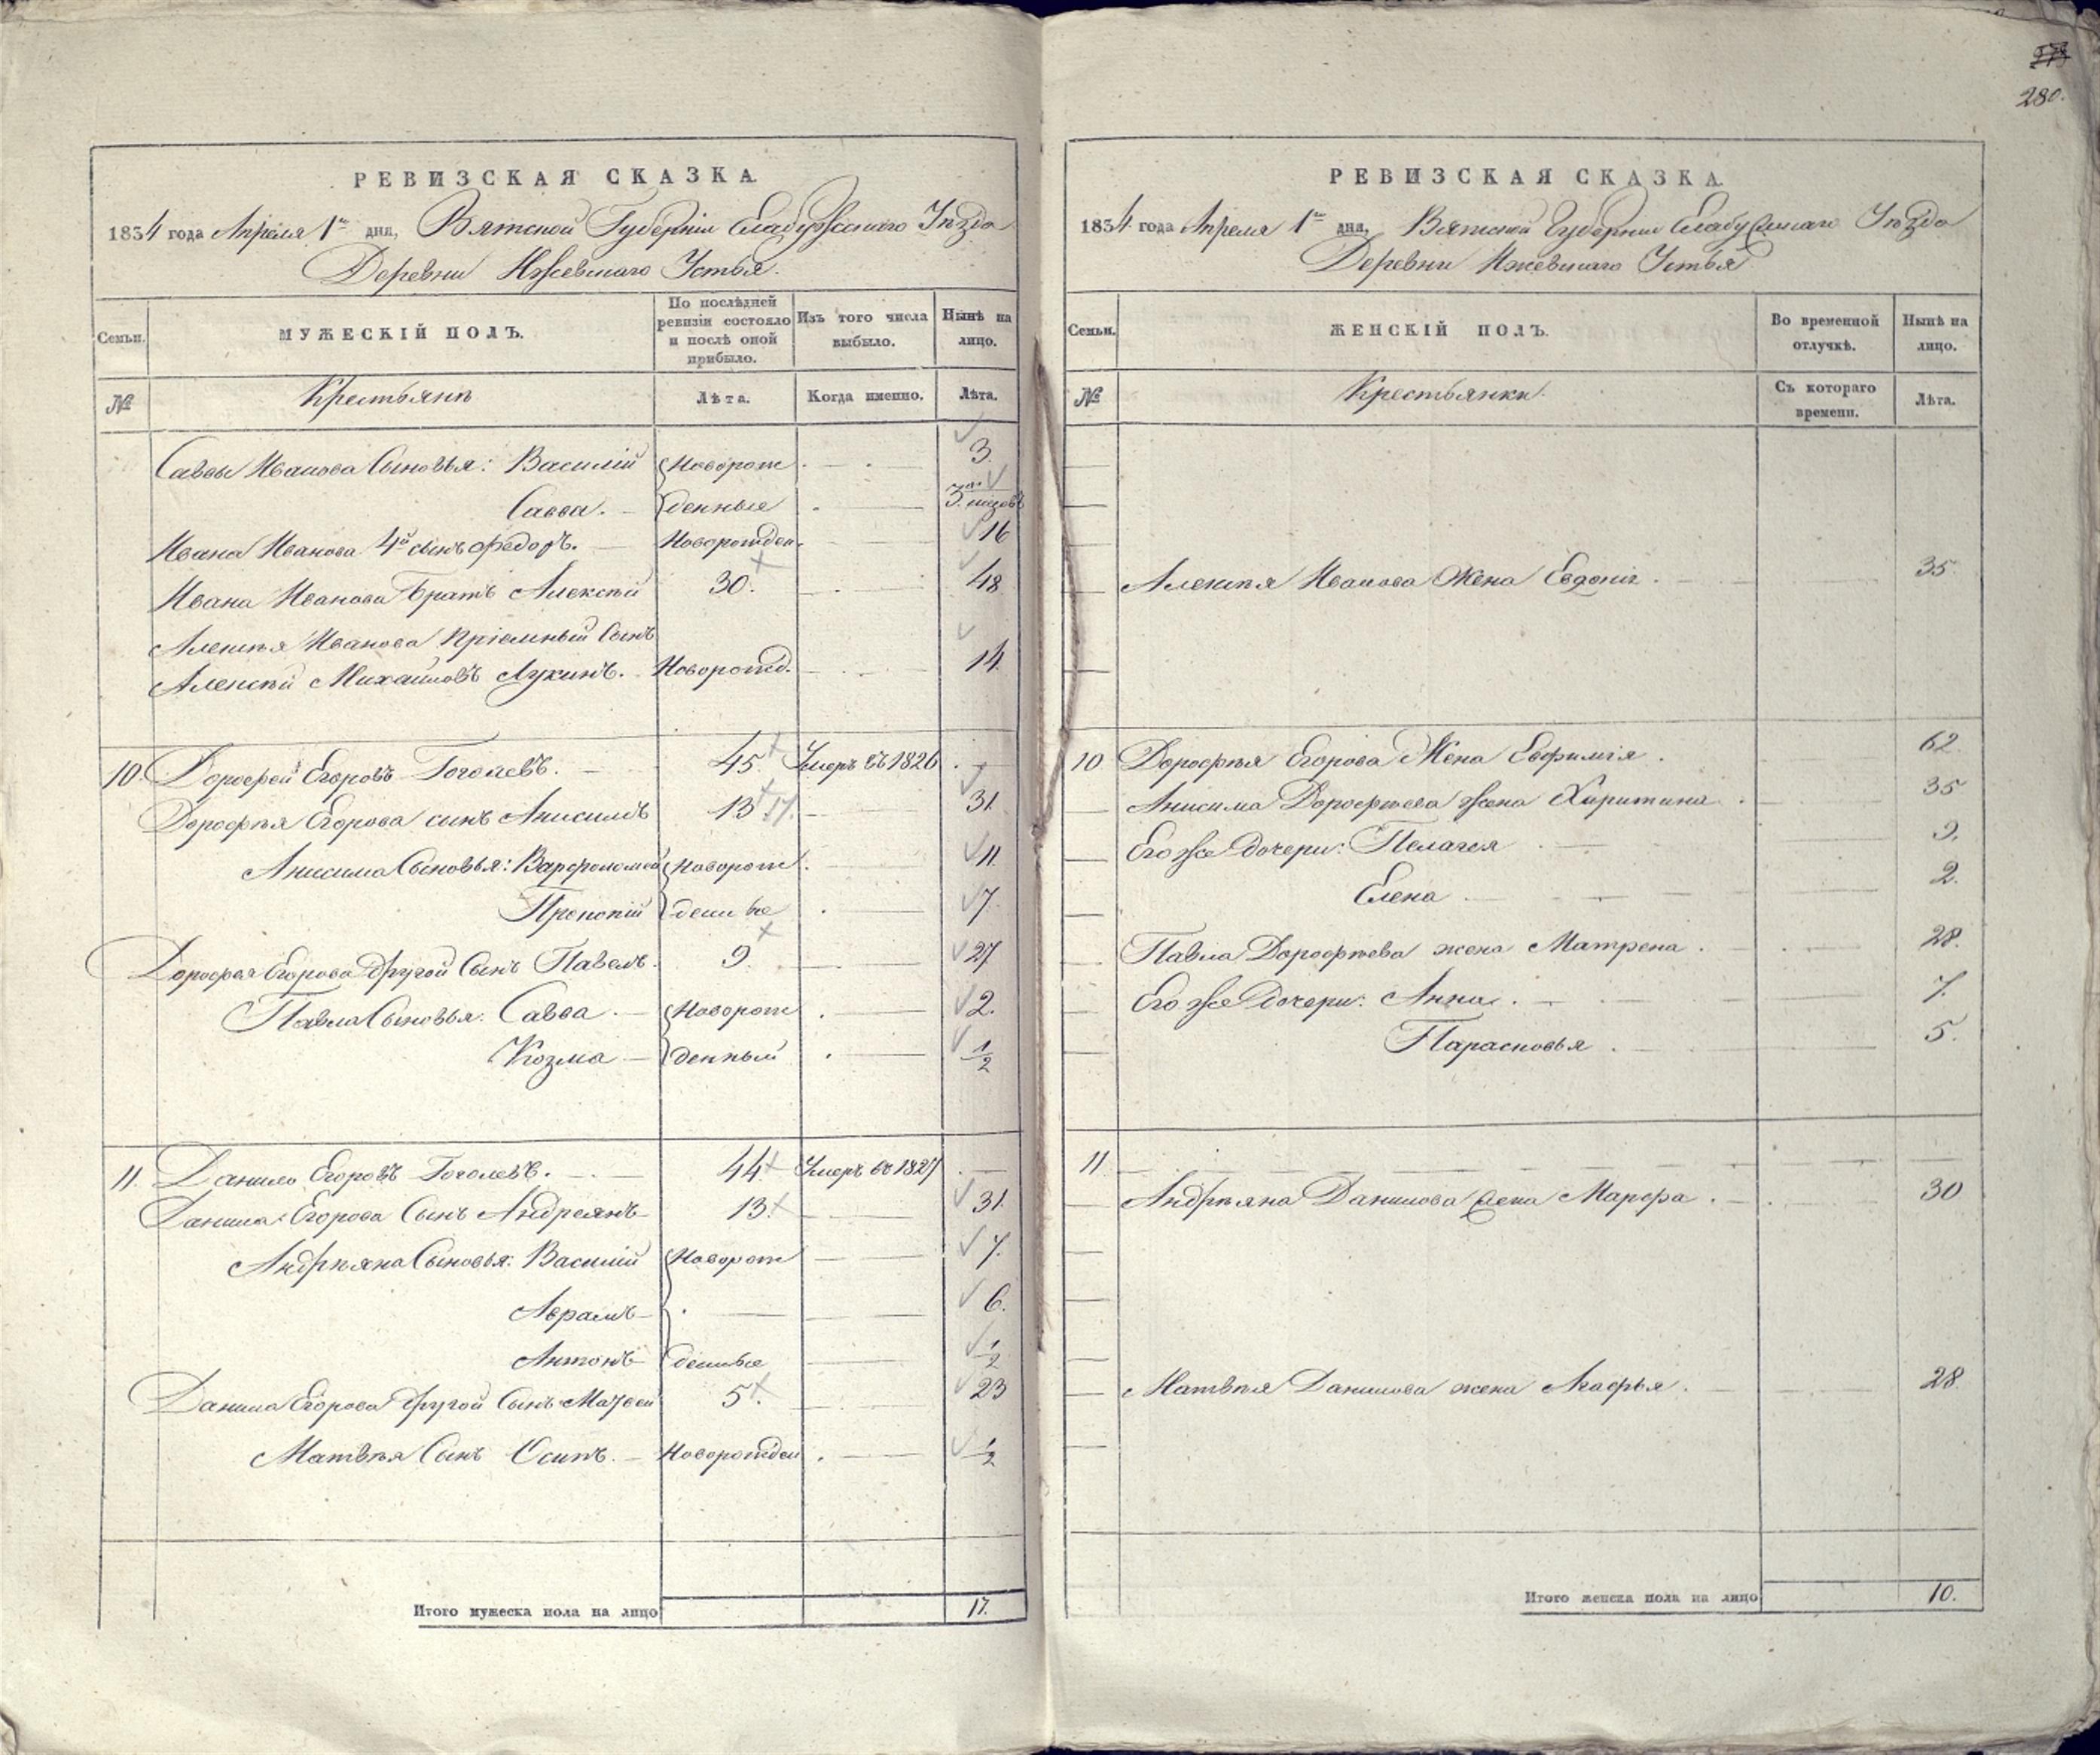 280.
РЕВИЗСКАЯ СКАЗКА
1834 года Апреля 1го дня, Вятской Губернии Елабужскаго Уѣзда
Деревни Ижевскаго Устья.
Семьи. МУЖЕСКІЙ ПОЛЪ. По послѣдней ревизіи состояло и послѣ оной прибыло. Изъ того числа выбыло. Нынѣ на лицо.
№ Крестьянѣ Лѣта. Когда именно. Лѣта.
Саввы Иванова Сыновья: Василій Новорож 3.
Савва. денные 3.
Ивана Иванова 4й сынъ Федоръ. Новорожден. 16
Ивана Иванова Братъ Алексѣй 30. 48
Алексѣя Иванова Пріемный Сынъ
Алексѣй Михайловъ Лукинъ. Новорожд. 14.
10. Дорофей Егоровъ Гоголевъ. 45. Умеръ въ 1826
Дорофѣя Егорова сынъ Анисимъ 13 31.
Анисима Сыновья: Варфоломей Новорож 11.
Прокопій денные 7.
Дорофея Егорова другой Сынъ Павелъ. 9. 27
Павла Сыновья: Савва. Новорож 2.
Козма денный 1/2
11. Данило Егоровъ Гоголевъ. 44 Умеръ въ 1827
Данила Егорова Сынъ Андреянъ 13. 31.
Андрѣяна Сыновья: Василій Новорож 7.
Аврамъ 6.
Антонъ денные 1/2
Данила Егорова другой Сынъ Матвей 5. 23
Матвѣя Сынъ Осипъ. Новорожден 1/2
Итого мужеска пола на лицо 17.
РЕВИЗСКАЯ СКАЗКА.
1834 года Апреля 1го дня, Вятской Губернии Елабужскаго Уѣзда
Деревни Ижевскаго Устья
Семьи. ЖЕНСКІЙ ПОЛЪ. Во временной отлучкѣ. Нынѣ на лицо.
№ Крестьянки. Съ котораго времени. Лѣта.
Алексѣя Иванова Жена Евдокія. 35.
10 Дорофѣя Егорова Жена Евфимія. 62
Анисима Дорофѣева жена Харитина 35
Его же дочери: Пелагея 9.
Елена 2.
Павла Дорофѣева жена Матрена. 28.
Его же Дочери: Анна. 7.
Парасковья. 5.
11
Андрѣяна Данилова жена Марфа. 30
Матвѣя Данилова жена Агафья. 28
Итого женска пола на лицо 10.